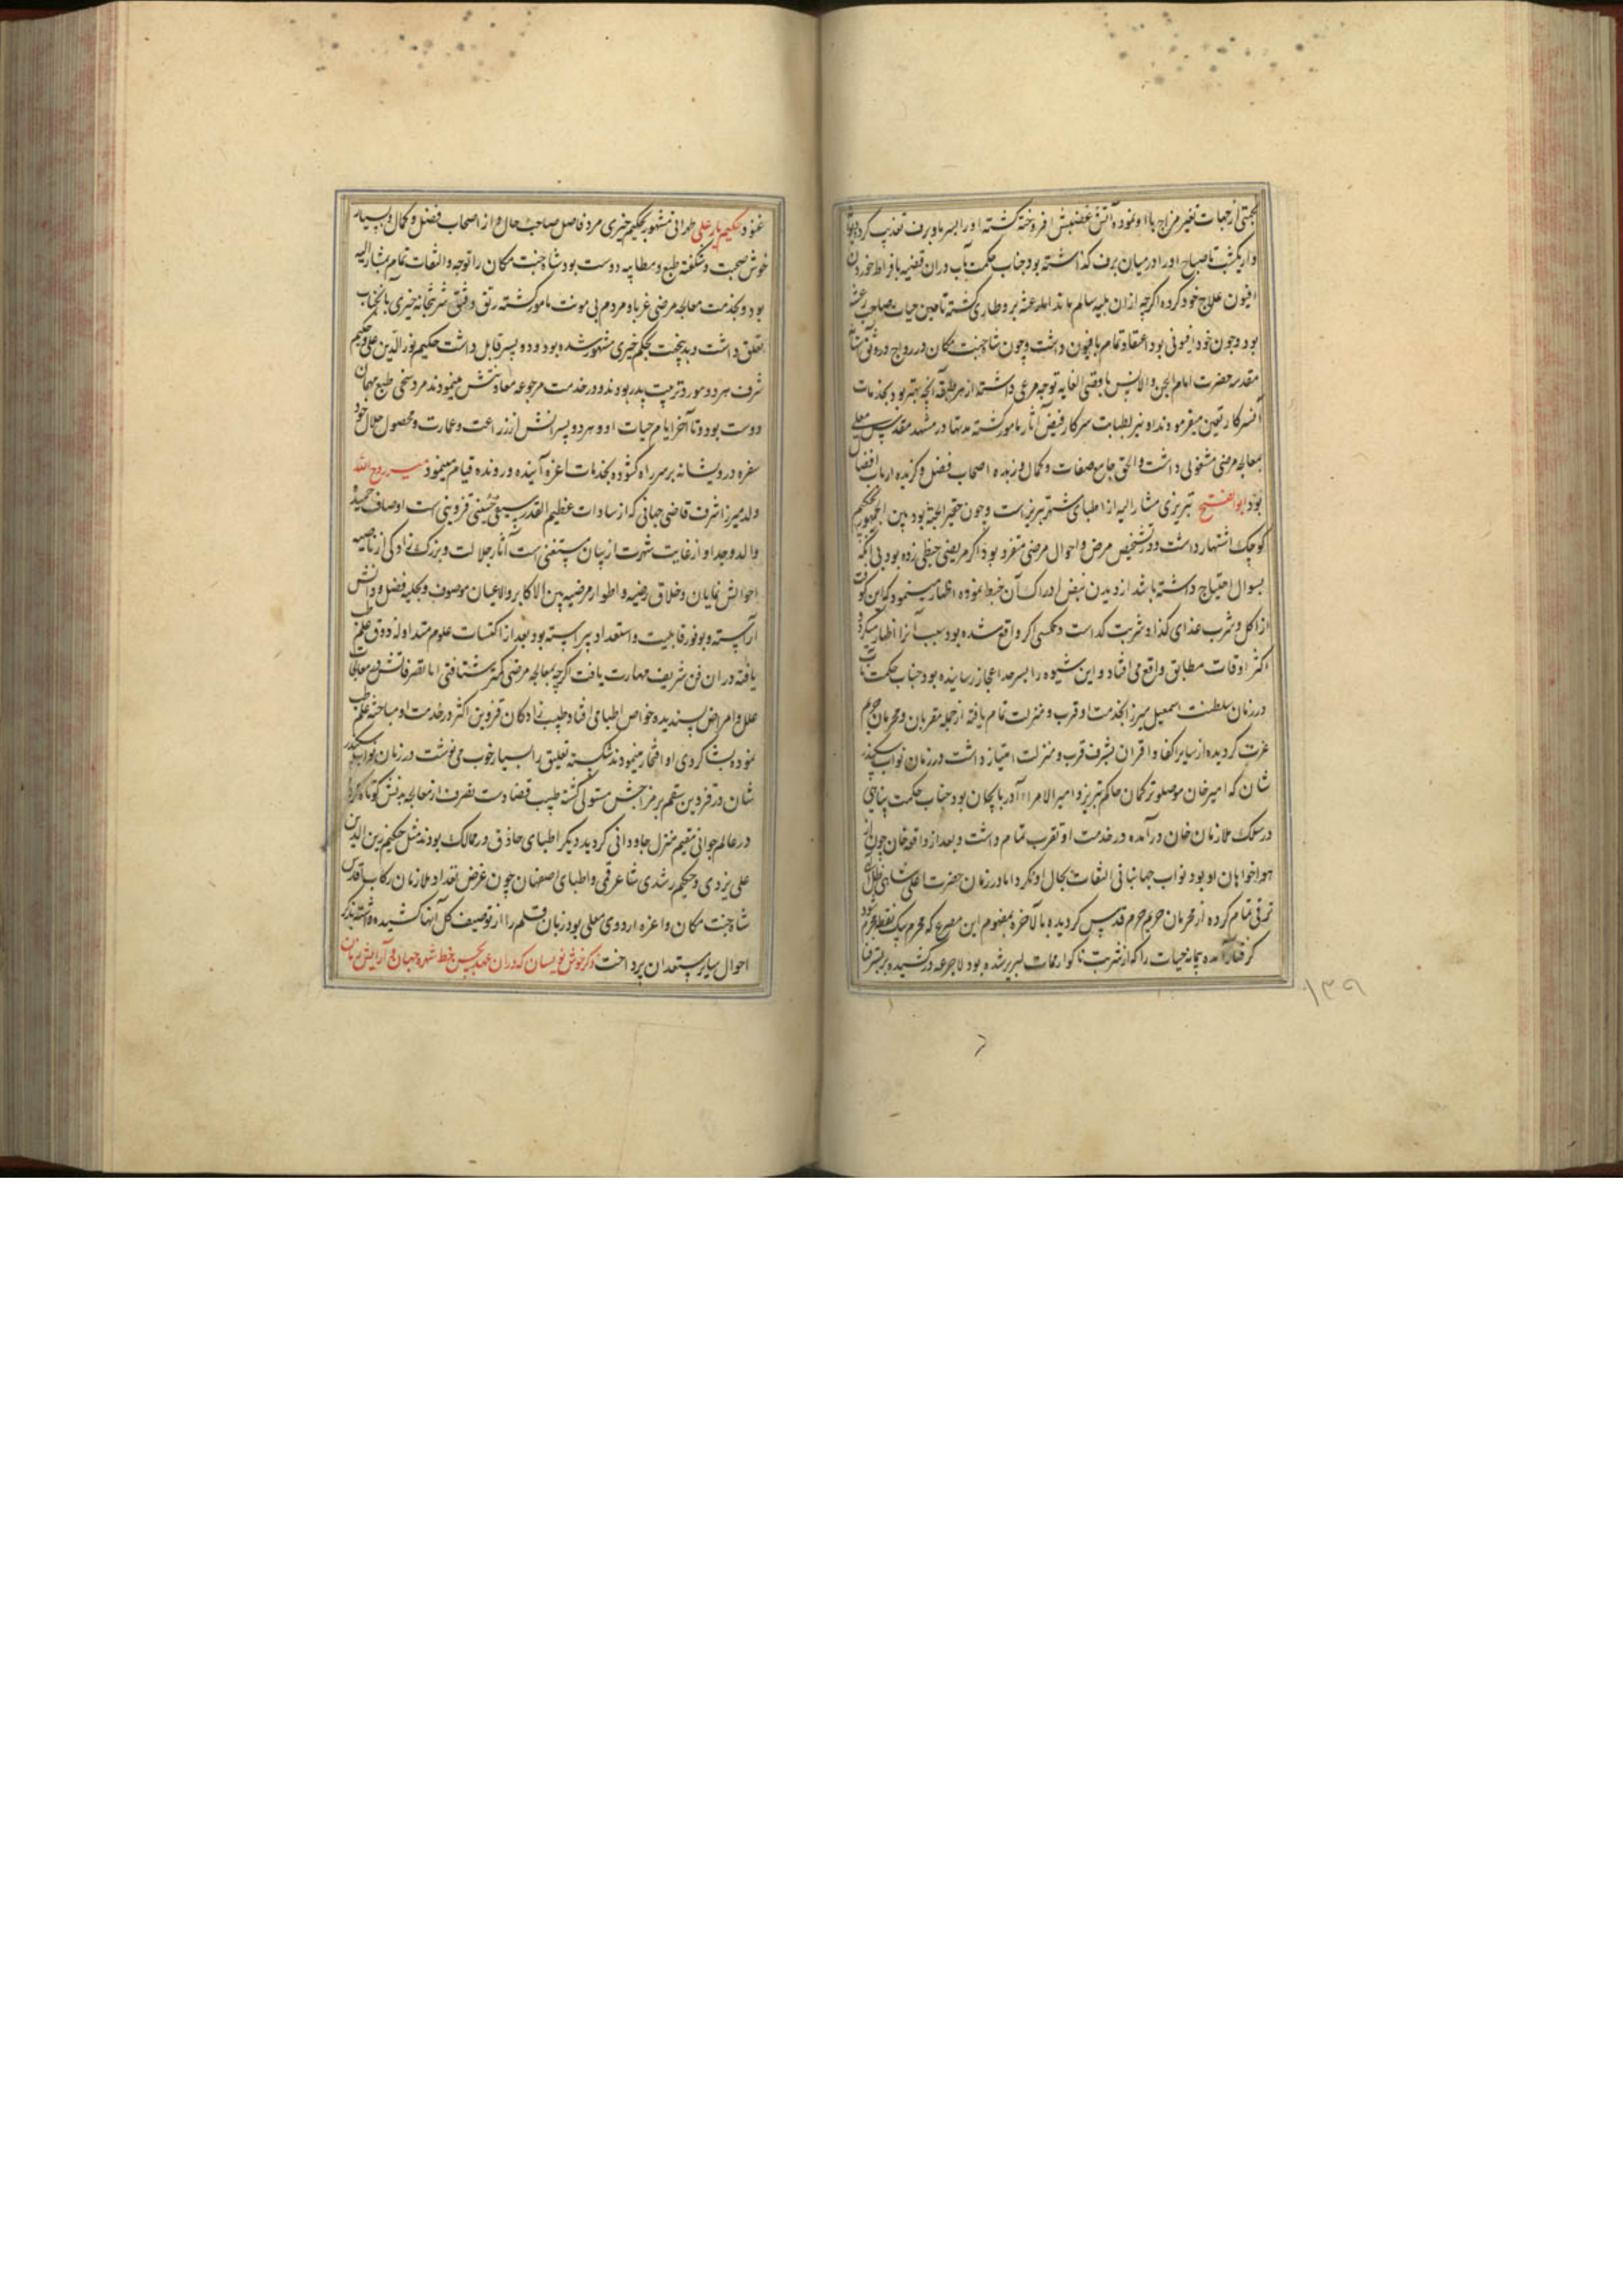 بجهتی از جهات تغیر مزاج با او نموده آتش غضبش افروخته گشته او را بسرما و برف تعذیب کرده بود
و از یکشب تا صباح او را در میان برف گذاشته بود جناب حکمت مآب در ان قضیه بافراط خوردن
افیون علاج خود کرده اگرچه ازان بلیه سالم ماند اما رعشه برو طاری گشته تا حین حیات صاحب رعشه
بود و چون خود افیونی بود اعتقاد تمام بافیون داشت و چون شاه جنت مکان در رواج و رونق آستانه
مقدسه حضرت امام الجن والانس باقصی الغایه توجه مرعی داشته از هر طبقه آنچه بهتر بود بخدمات
آنسرکار تعیین میفرمودند او نیز بطبابت سرکار فیض آثار مامور گشته مدتها در مشهد مقدس معلی
بمعالجه مرضی مشغولی داشت والحق جامع صفات و کمال و زبده اصحاب فضل و گزیده ارباب افضال
بود ابوالفتح تبریزی مشار الیه از اطبای مشهور تبریزست و چون حقیر الجثه بود بین الجمهور بحکیم
کوچک اشتهار داشت و در تشخیص مرض و احوال مرضی متفرد بود اگر مریضی خبطی زده بود بی آنکه
بسوال احتیاج داشته باشد از دیدن نبض ادراک آن خبط نموده اظهار مینمود که این کوفت
از اکل و شرب غذای کذا و شربت کذاست و عکسی اگر واقع شده بود سبب آنرا اظهار میکرد و
اکثر اوقات مطابق واقع می افتاد و این شیوه را بسرحد اعجاز رسانیده بود جناب حکمت مآب
در زمان سلطنت اسمعیل میرزا بخدمت او قرب و منزلت تمام یافته از جمله مقربان و محرمان حرم
عزت گردیده از سایر اکفا و اقران بشرف قرب و منزلت امتیاز داشت در زمان نواب سکندر
شان که امیر خان موصلو ترکمان حاکم تبریز و امیر الامراء آذربایجان بود جناب حکمت پناهی
در سلک ملازمان خان درآمده در خدمت او تقرب تمام داشت و بعد از واقعه خان چون از
هواخواهان او بود نواب جهانبانی التفات بحال او نکرد اما در زمان حضرت اعلی شاهی ظل اللهی
ترقی تمام کرده از محرمان حریم حرم قدس گردیده بالآخره بمفهوم این مصرع که محرم بیک نقطه مجرم شود
گرفتار آمده پیمانه حیات را که از شربت ناگوار ممات لبریز شده بود لاجرعه درکشیده بر بستر فنا
غنود حکیم یار علی طهرانی مشهور بحکیم خیری مرد فاضل صاحب حال و از اصحاب فضل و کمال و بسیار
خوش صحبت و شکفته طبع و مطایبه دوست بود شاه جنت مکان را توجه و التفات تمام بمشار الیه
بود و بخدمت معالجه مرضی غربا و مردم بی مونت مامور گشته رتق و فتق شربتخانه خیری بآنجناب
تعلق داشت و بدینجهت بحکیم خیری مشهور شده بود و دو پسر قابل داشت حکیم نورالدین علی و حکیم
شرف هر دو مورد تربیت پدر بودند و در خدمت مرجوعه معاونتش مینمودند مرد سخی طبع مهمان
دوست بود و تا آخر ایام حیات او و هر دو پسرانش از زراعت و عمارت و محصول حلال خود
سفره درویشانه بر سر راه گشوده بخدمات اعزه آینده و رونده قیام مینمود میر روح الله
ولد میرزا شرف قاضی جهانی که از سادات عظیم القدر سیفی حسنی قزوینی است اوصاف حمیده
والد و جد او از غایت شهرت از بیان مستغنی است آثار جلالت و بزرگ زادگی از ناصیه
احوالش نمایان و باخلاق رضیه و اطوار مرضیه بین الاکابر والاعیان موصوف و بحلیه فضل و دانش
آراسته و بوفور قابلیت و استعداد پیراسته بود بعد از اکتسات علوم متداوله ذوق علم طب
یافته در ان فن شریف مهارت یافت اگرچه بمعالجه مرضی کمتر شتافتی اما تصرفاتش در معالجات
علل و امراض پسندیده خواص اطبا می افتاد و طبیب زادکان قزوین اکثر در خدمت او مباحثه علم طب
نموده بشاگردی او افتخار مینمودند شکسته تعلیق را بسیار خوب می نوشت در زمان نواب سکندر
شان در قزوین سقم بر مزاجش مستولی گشته طبیب قضا دست تصرف از معالجه بدنش کوتاه کرد
در عالم جوانی مقیم منزل جاودانی گردید دیگر اطبای حاذق در ممالک بودند مثل حکیم زین الدین
علی یزدی و حکیم رشدی شاعر قمی و اطبای اصفهان چون غرض تعداد ملازمان رکاب اقدس
شاه جنت مکان و اعزه اردوی معلی بود زبان قلم را از توصیف کل آنها کشیده داشته بذکر
احوال سایر مستعدان پرداخت ذکر خوش نویسان که در ان عهد بحسن خط شهره جهان و آرایش زمان
۱۳۹